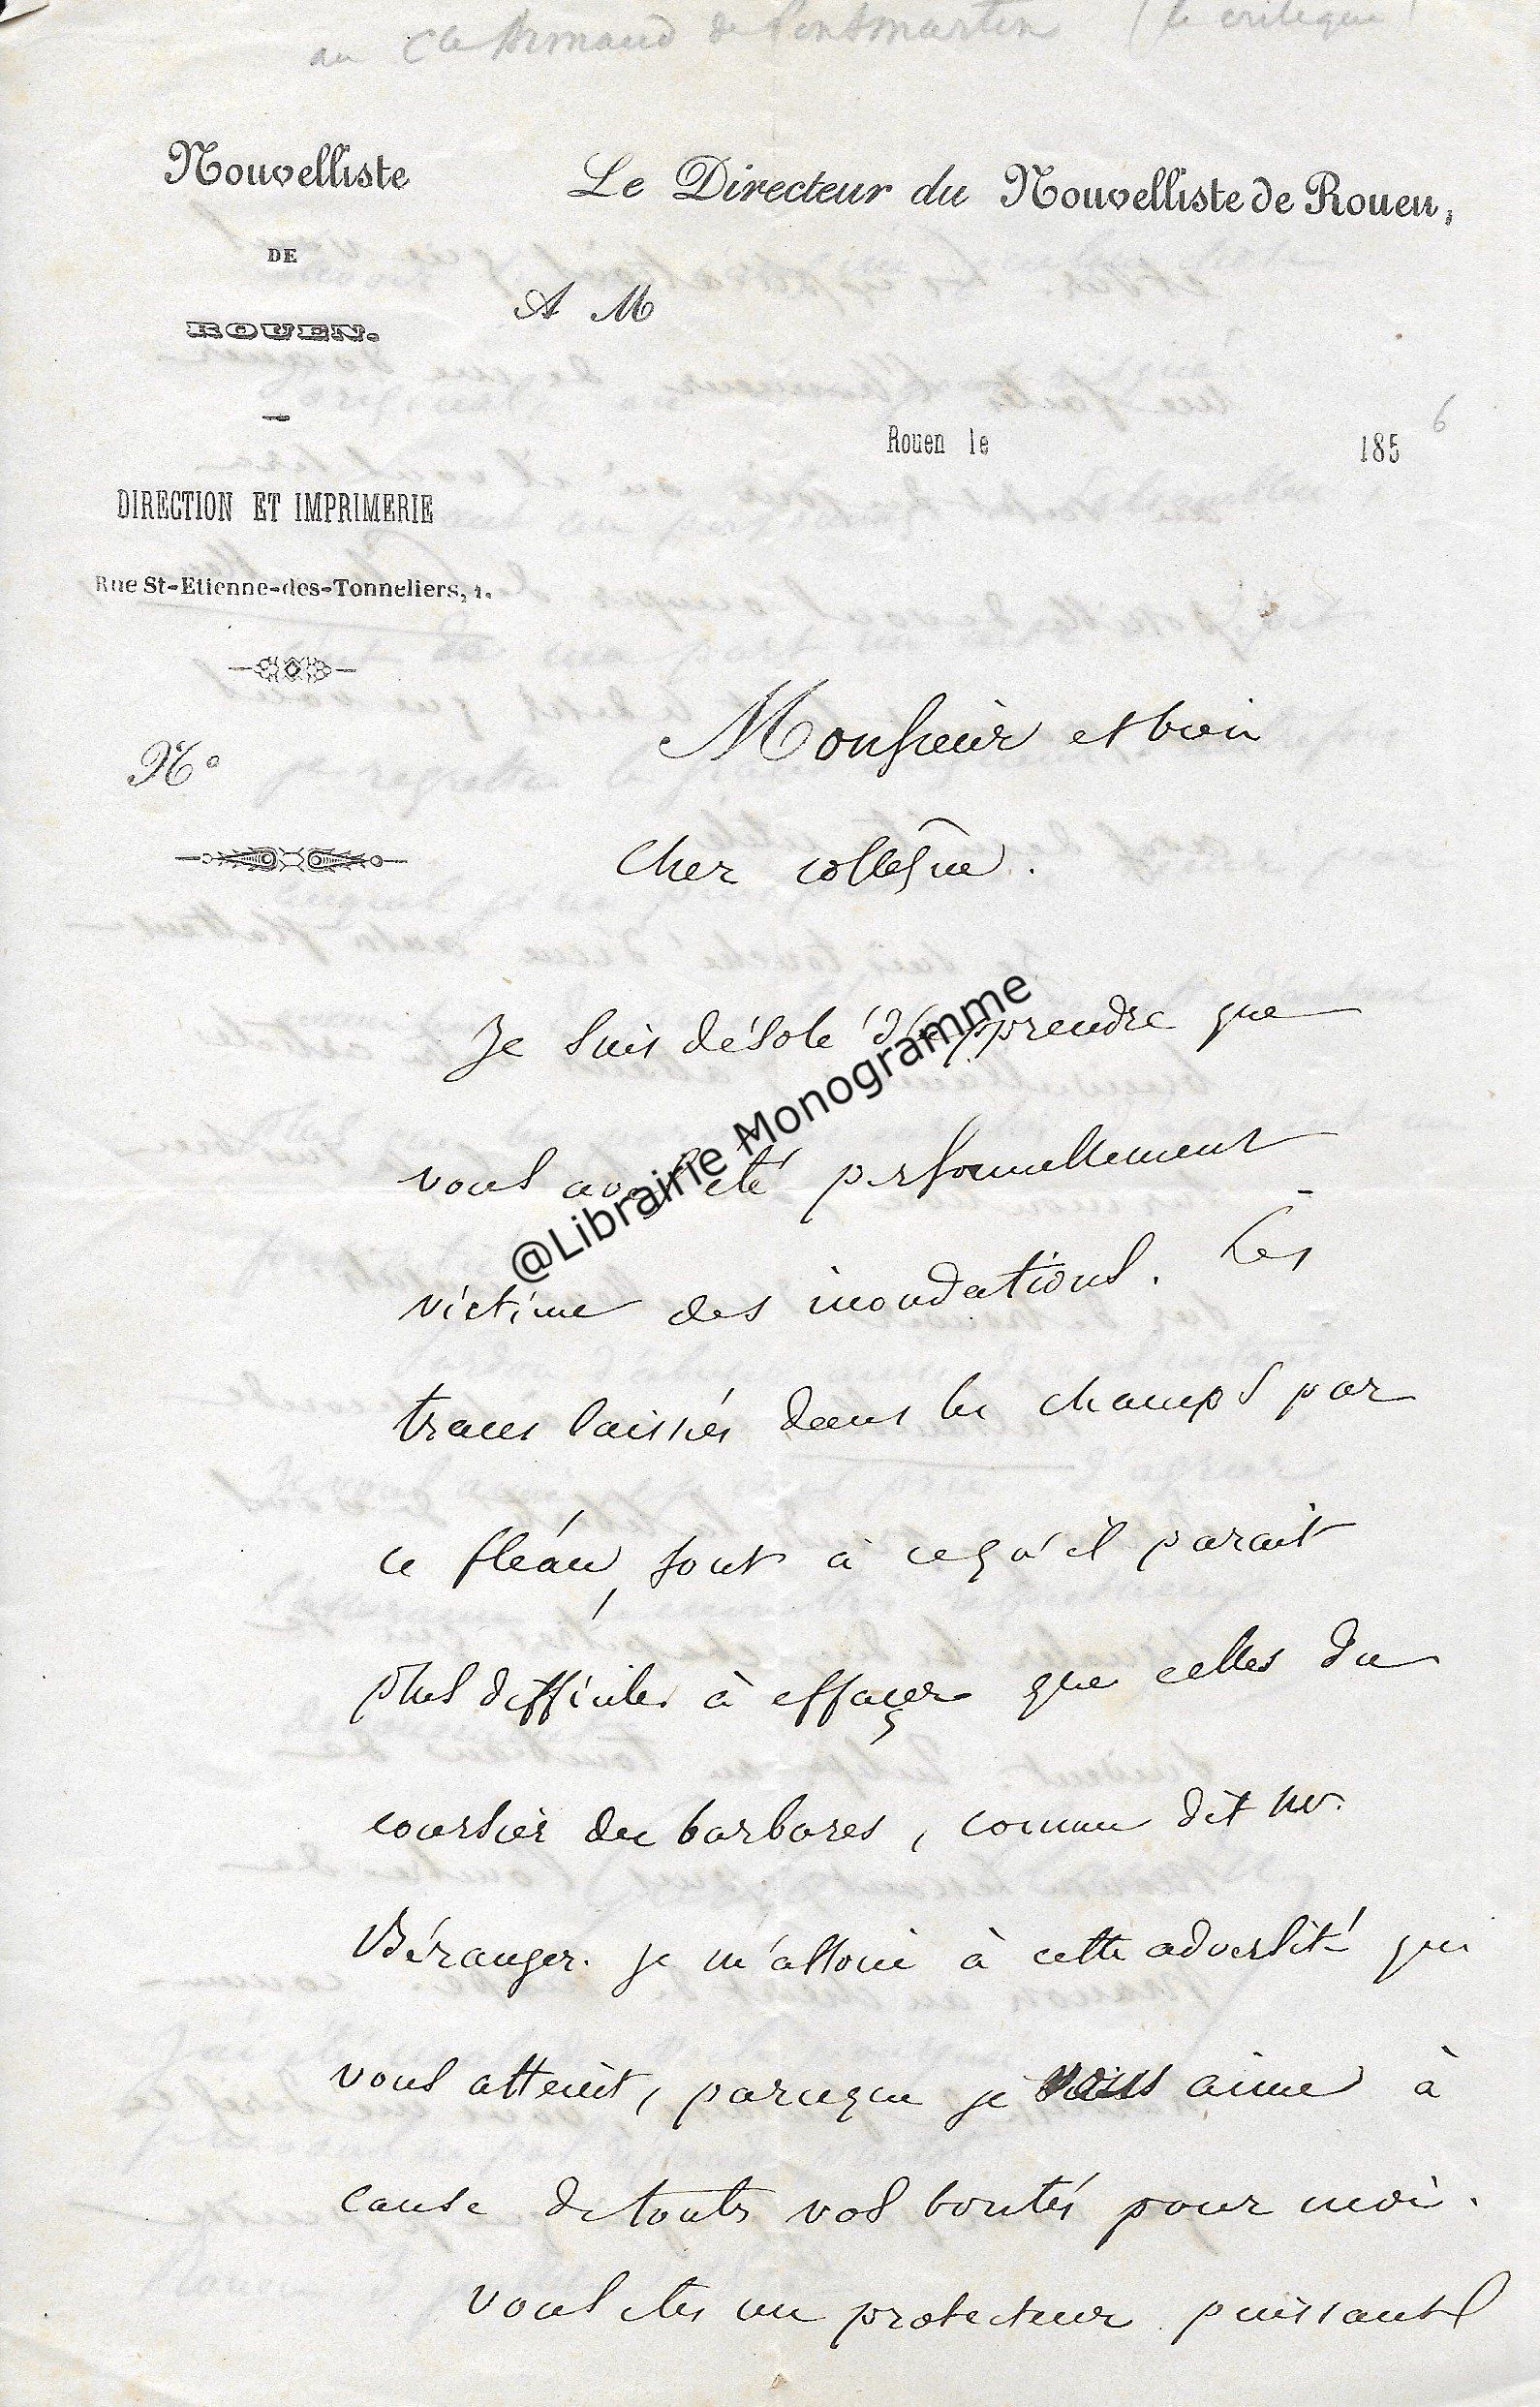 au Cte Armand de Pontmartin (le critique)
Nouvelliste
DE
ROUEN.
DIRECTION ET IMPRIMERIE
Rue St-Etienne-des-Tonneliers, 1.
No
Le Directeur du Nouvelliste de Rouen,
A M
Rouen le 185 6
Monsieur et bien
cher collègue.
Je suis désolé d'apprendre que
vous avez été personnellement
victime des inondations. Les
traces laissées dans les champs par
ce fléau, sont à ce qu'il parait
plus difficiles à effaçer que celles du
coursier des barbares, comme dit mr.
Béranger. je m'associe à cette adversité qui
vous atteint, parceque je vous aime à
cause de toutes vos bontés pour moi.
Vous êtes un protecteur puissant
@Librairie Monogramme